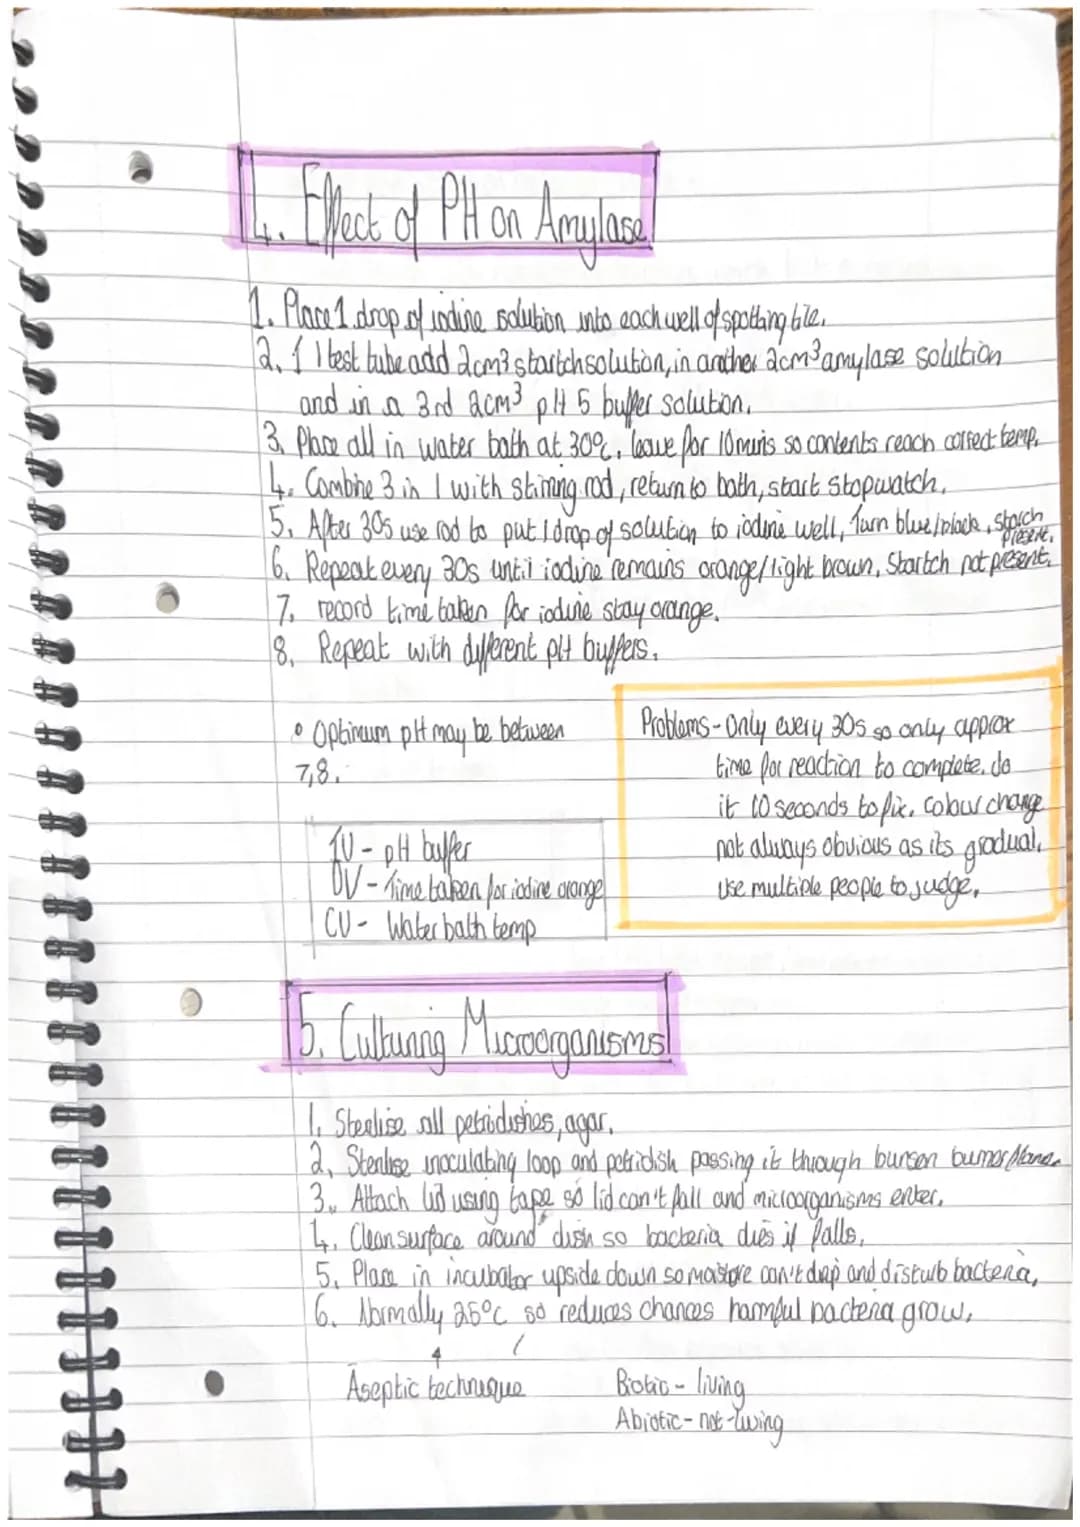 4. Effect of PH on Amylase
1. Place 1 drop of iodine solution into each well of spotting tile.
2. 1 test tube add 2cm3 startch solution, in another 2cm³ amylase solution
and in a 3rd 2cm³ pH 5 buffer solution.
3. Place all in water bath at 30°c, leave for 10 mins so contents reach correct temp.
4. Combine 3 in 1 with stirring rod, return to bath, start stopwatch.
5. After 30s use rod to put 1 drop of solution to iodine well, Turn blue/black, starch
present.
6. Repeat every 30s until iodine remains orange/light brown, Startch not present.
7. record time taken for iodine stay orange.
8. Repeat with different pH buffers.
• Optimum pH may be between
7,8.
IV - pH buffer
DV - Time taken for iodine orange
CV - Water bath temp
Problems - Only every 30s so only approx
time for reaction to complete. do
it 10 seconds to fix. Colour change
not always obvious as its gradual,
use multiple people to judge.
5. Culturing Microorganisms
1. Sterilise all petridishes, agar.
2. Sterilise inoculating loop and petridish passing it through bunsen burner flame.
3. Attach lid using tape so lid can't fall and microorganisms enter.
4. Clean surface around dish so bacteria dies if falls.
5. Place in incubator upside down so moisture can't drip and disturb bacteria,
6. Normally 25°c so reduces chances harmful bacteria grow.
Aseptic technique
Biotic - living
Abiotic - not-living